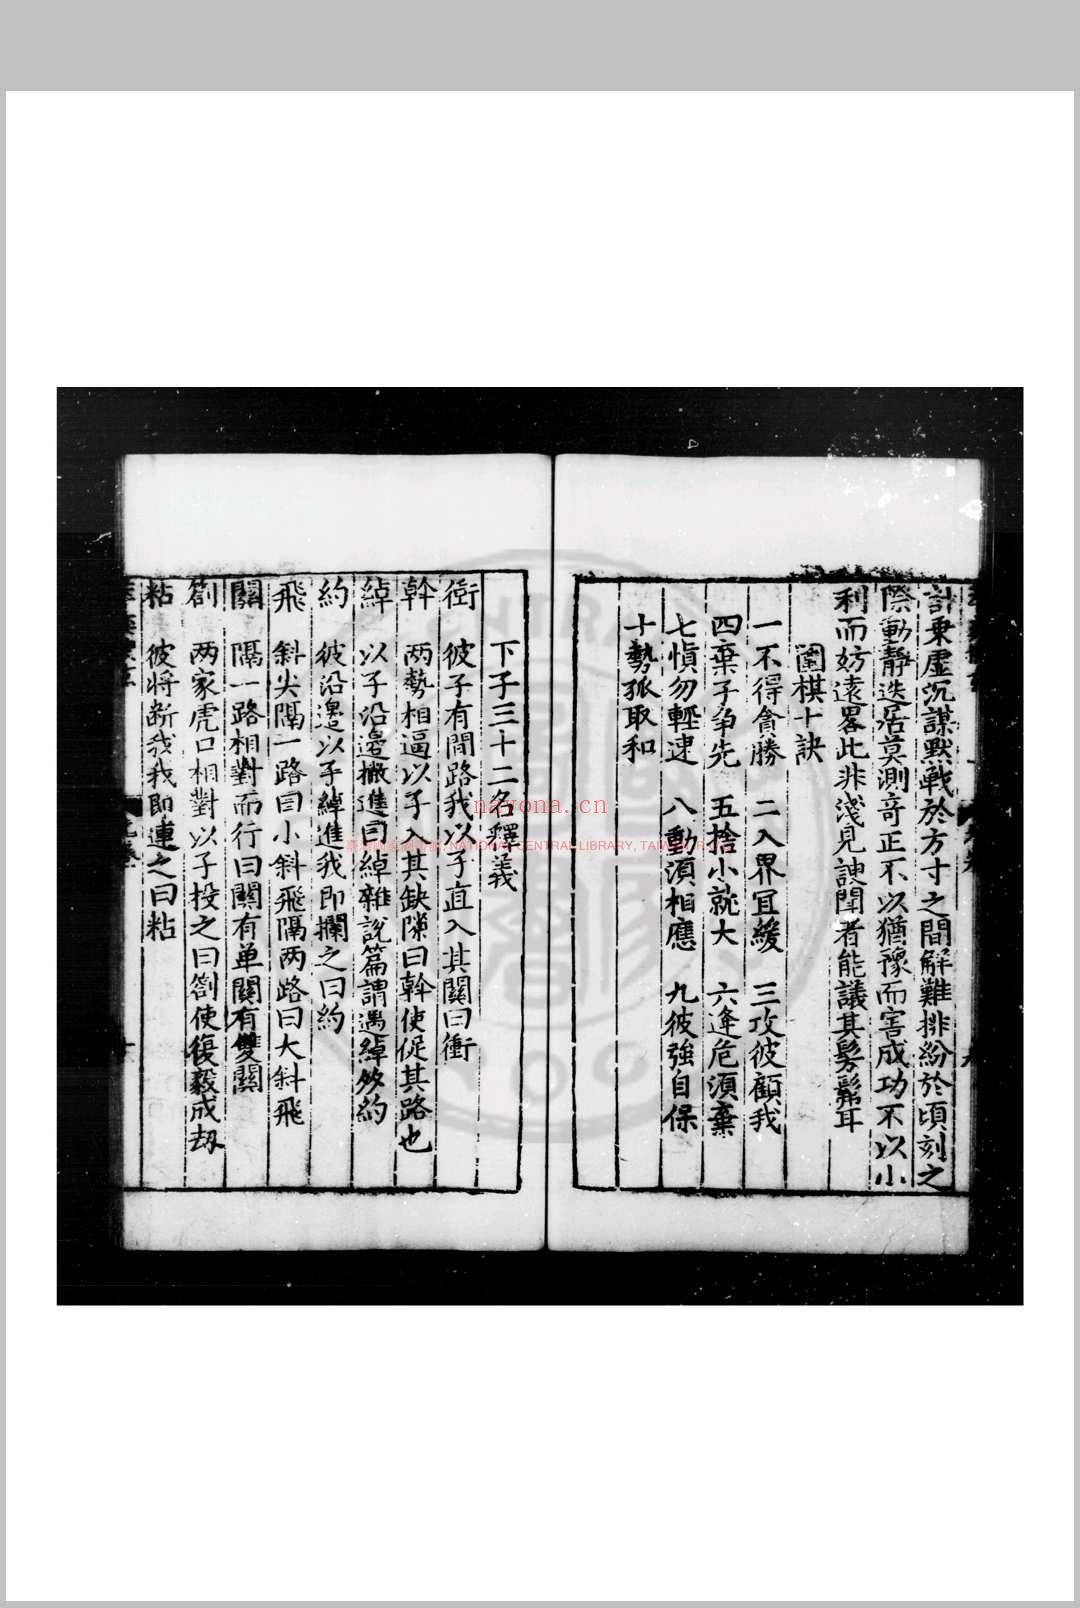 計乗虚沉謀默戰於方寸之間解難排紛於頃刻之
際動靜迭居莫測竒正不以猶豫而害成功不以小
利而妨遠畧此非淺見謏聞者能議其髣髴耳
圍棋十訣
一不得貪勝 二入界冝緩 三攻彼顧我
四棄子争先 五捨小就大 六逢危湏棄
七慎勿輕速 八動湏相應 九彼強自保
十勢孤取和
下子三十二名釋義
衝 彼子有間路我以子直入其關曰衝
幹 两勢相逼以子入其缺隙曰幹使促其路也
綽 以子沿邊撇進曰綽雜説篇謂遇綽多約
約 彼沿邊以子綽進我即攔之曰約
飛 斜尖隔一路曰小斜飛隔两路曰大斜飛
關 隔一路相對而行曰關有单關有雙關
劄 两家虎口相對以子投之曰劄使復毅成刼
粘 彼將断我我即連之曰粘
nayona.cn
NATIONAL CENTRAL LIBRARY, TAIWAN, R.O.C